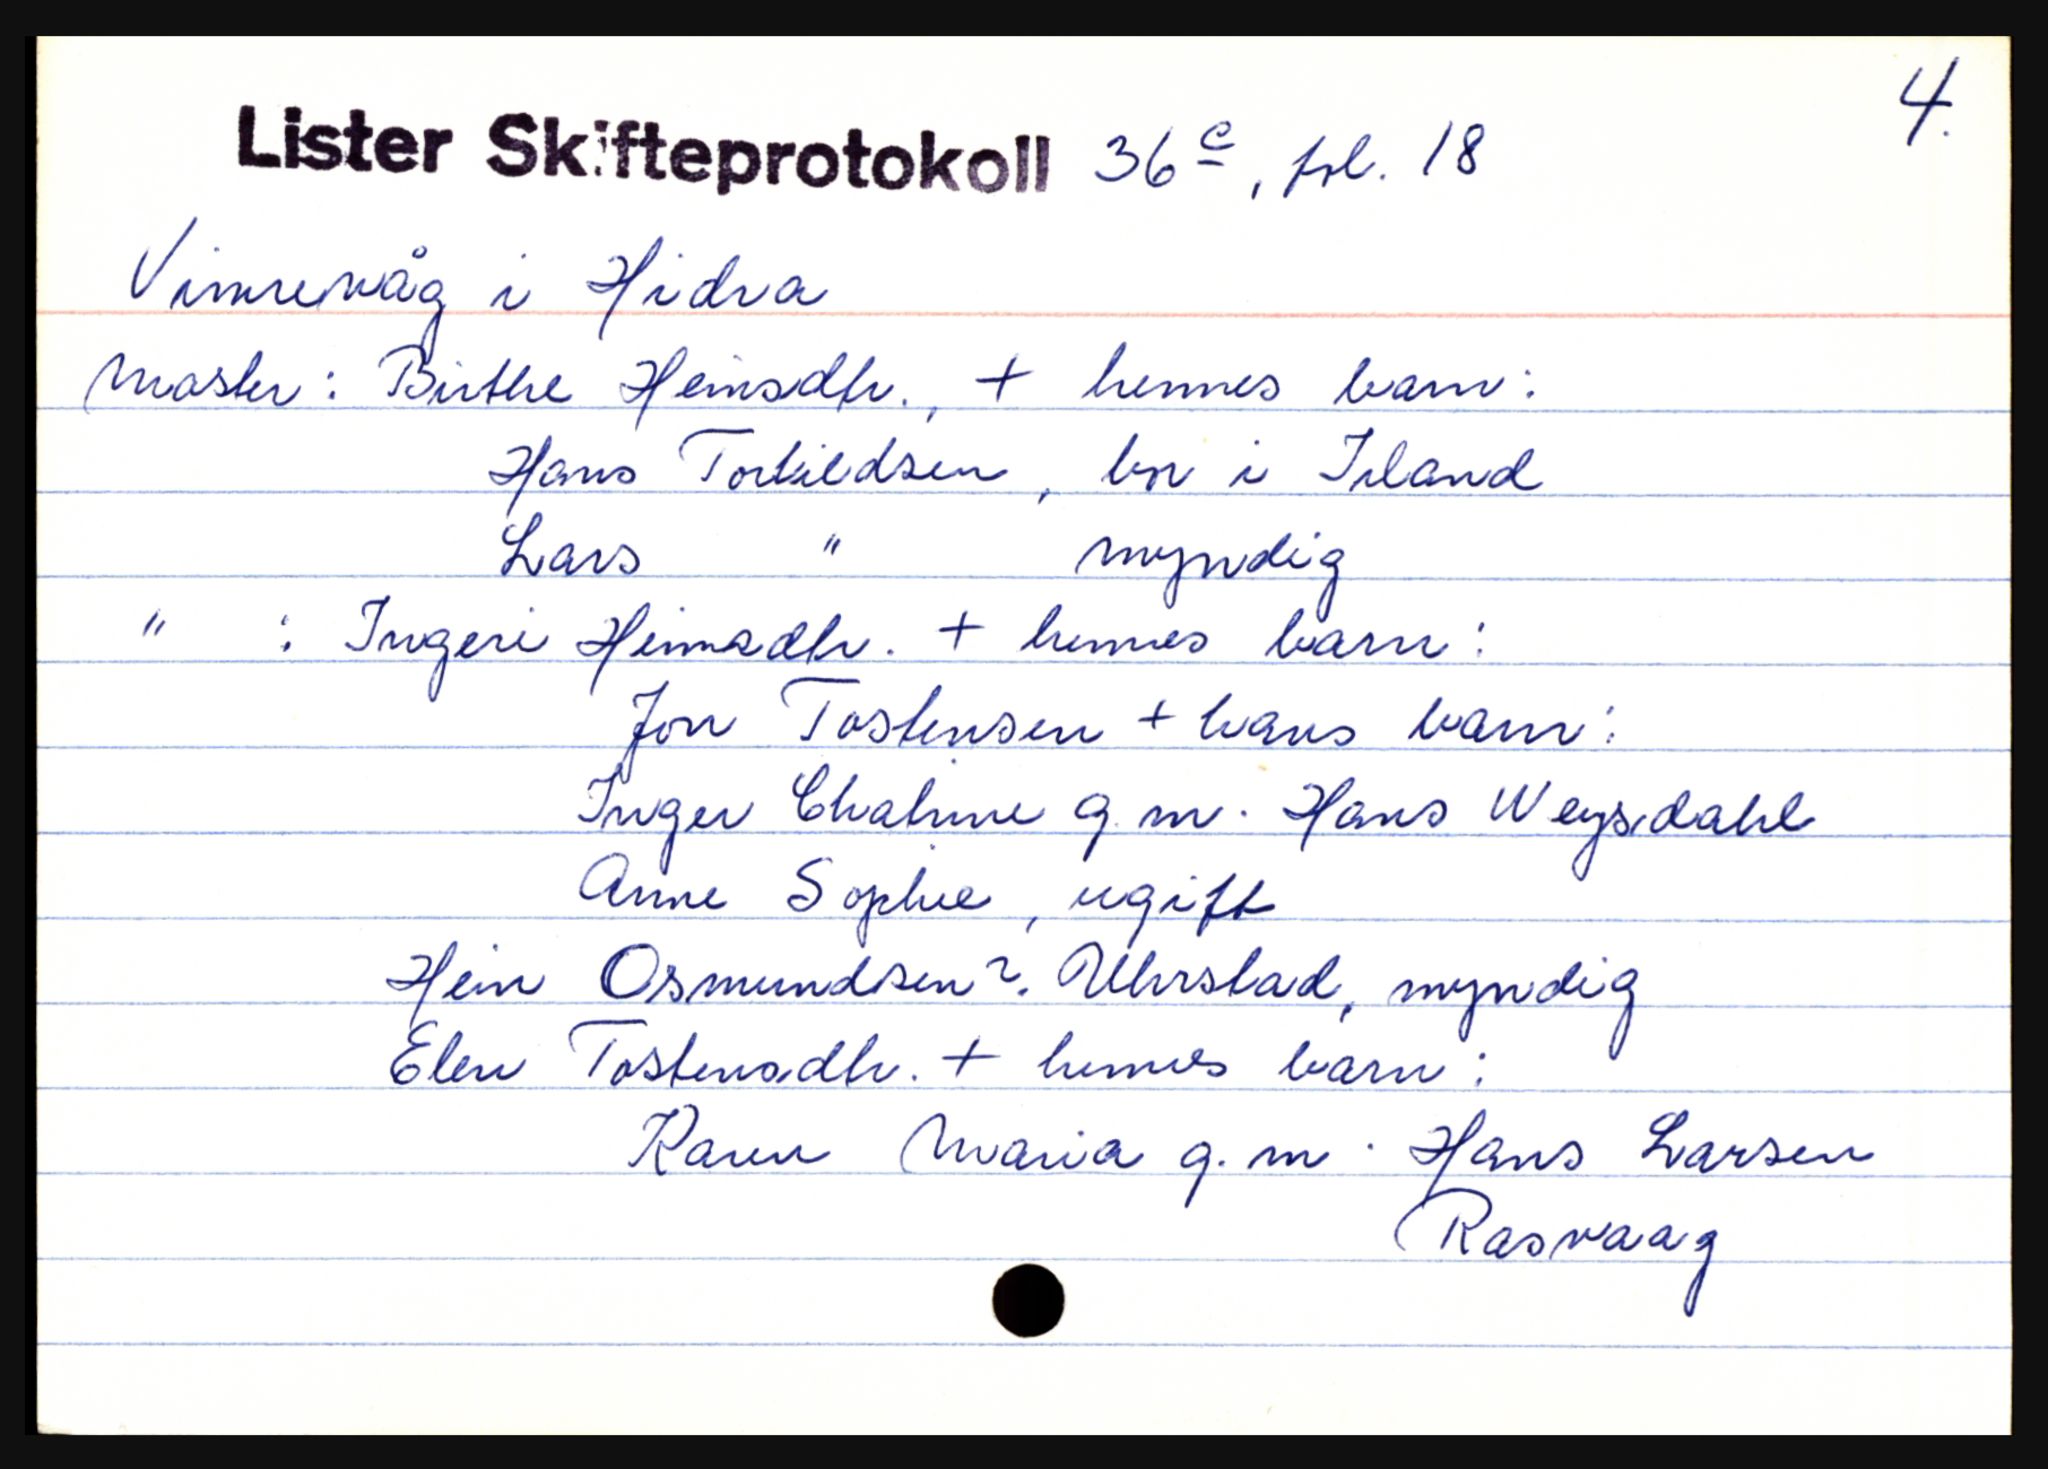 4.
Lister Skifteprotokoll 36c, fol. 18
Vinnevåg i Hidra
Moster: Birthe Heinsdtr., + hennes barn:
Hans Torkildsen, bor i Irland
Lars " myndig
" : Ingeri Heinsdtr. + hennes barn:
Jon Tostensen + hans barn:
Inger Chatrine g.m. Hans Weysdahl
Anne Sophie, ugift
Hein Osmundsen?. Uhrstad, myndig
Elen Tostensdtr. + hennes barn:
Karen Maria g.m. Hans Larsen
Rasvaag